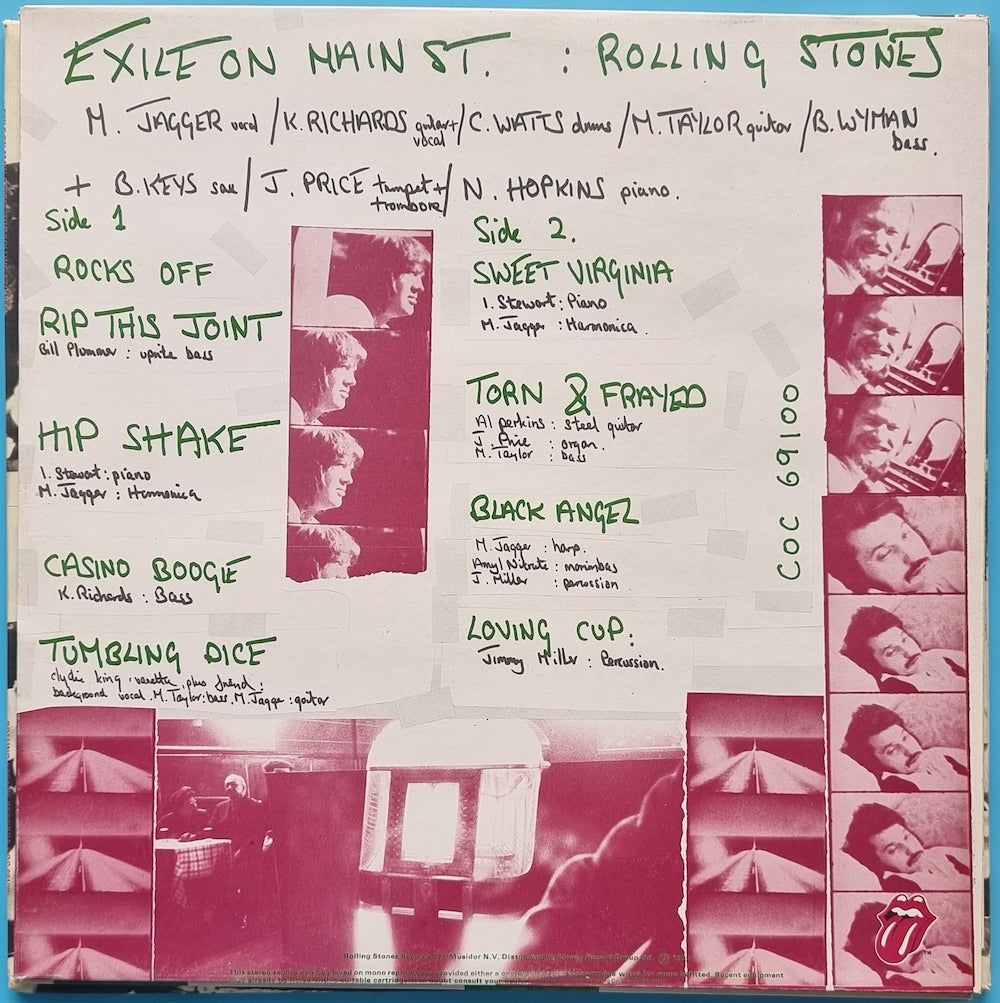 EXILE ON MAIN ST. : ROLLING STONES
M. JAGGER vocal / K. RICHARDS guitar + vocal / C. WATTS drums / M. TAYLOR guitar / B. WYMAN bass.
+ B. KEYS sax / J. PRICE trumpet + trombone / N. HOPKINS piano.
Side 1
ROCKS OFF
RIP THIS JOINT
Bill Plummer : uprite bass
HIP SHAKE
I. Stewart : piano
M. Jagger : Harmonica
CASINO BOOGIE
K. Richards : Bass
TUMBLING DICE
clydie king, vanetta, plus friend :
background vocal. M. Taylor : bass, M. Jagger : guitar
Side 2.
SWEET VIRGINIA
I. Stewart : Piano
M. Jagger : Harmonica.
TORN & FRAYED
Al perkins : steel guitar
J. Price : organ.
M. Taylor : bass
BLACK ANGEL
M. Jagger : harp.
Amyl Nitrate : marimbas
J. Miller : percussion
LOVING CUP.
Jimmy Miller : Percussion.
COC 69100
Rolling Stones Records Musidor N.V. Distributed by
This stereo record can be played on mono reproducers provided either a
fitted. Recent equipment
suitable cartridge. If in doubt consult your dealer.